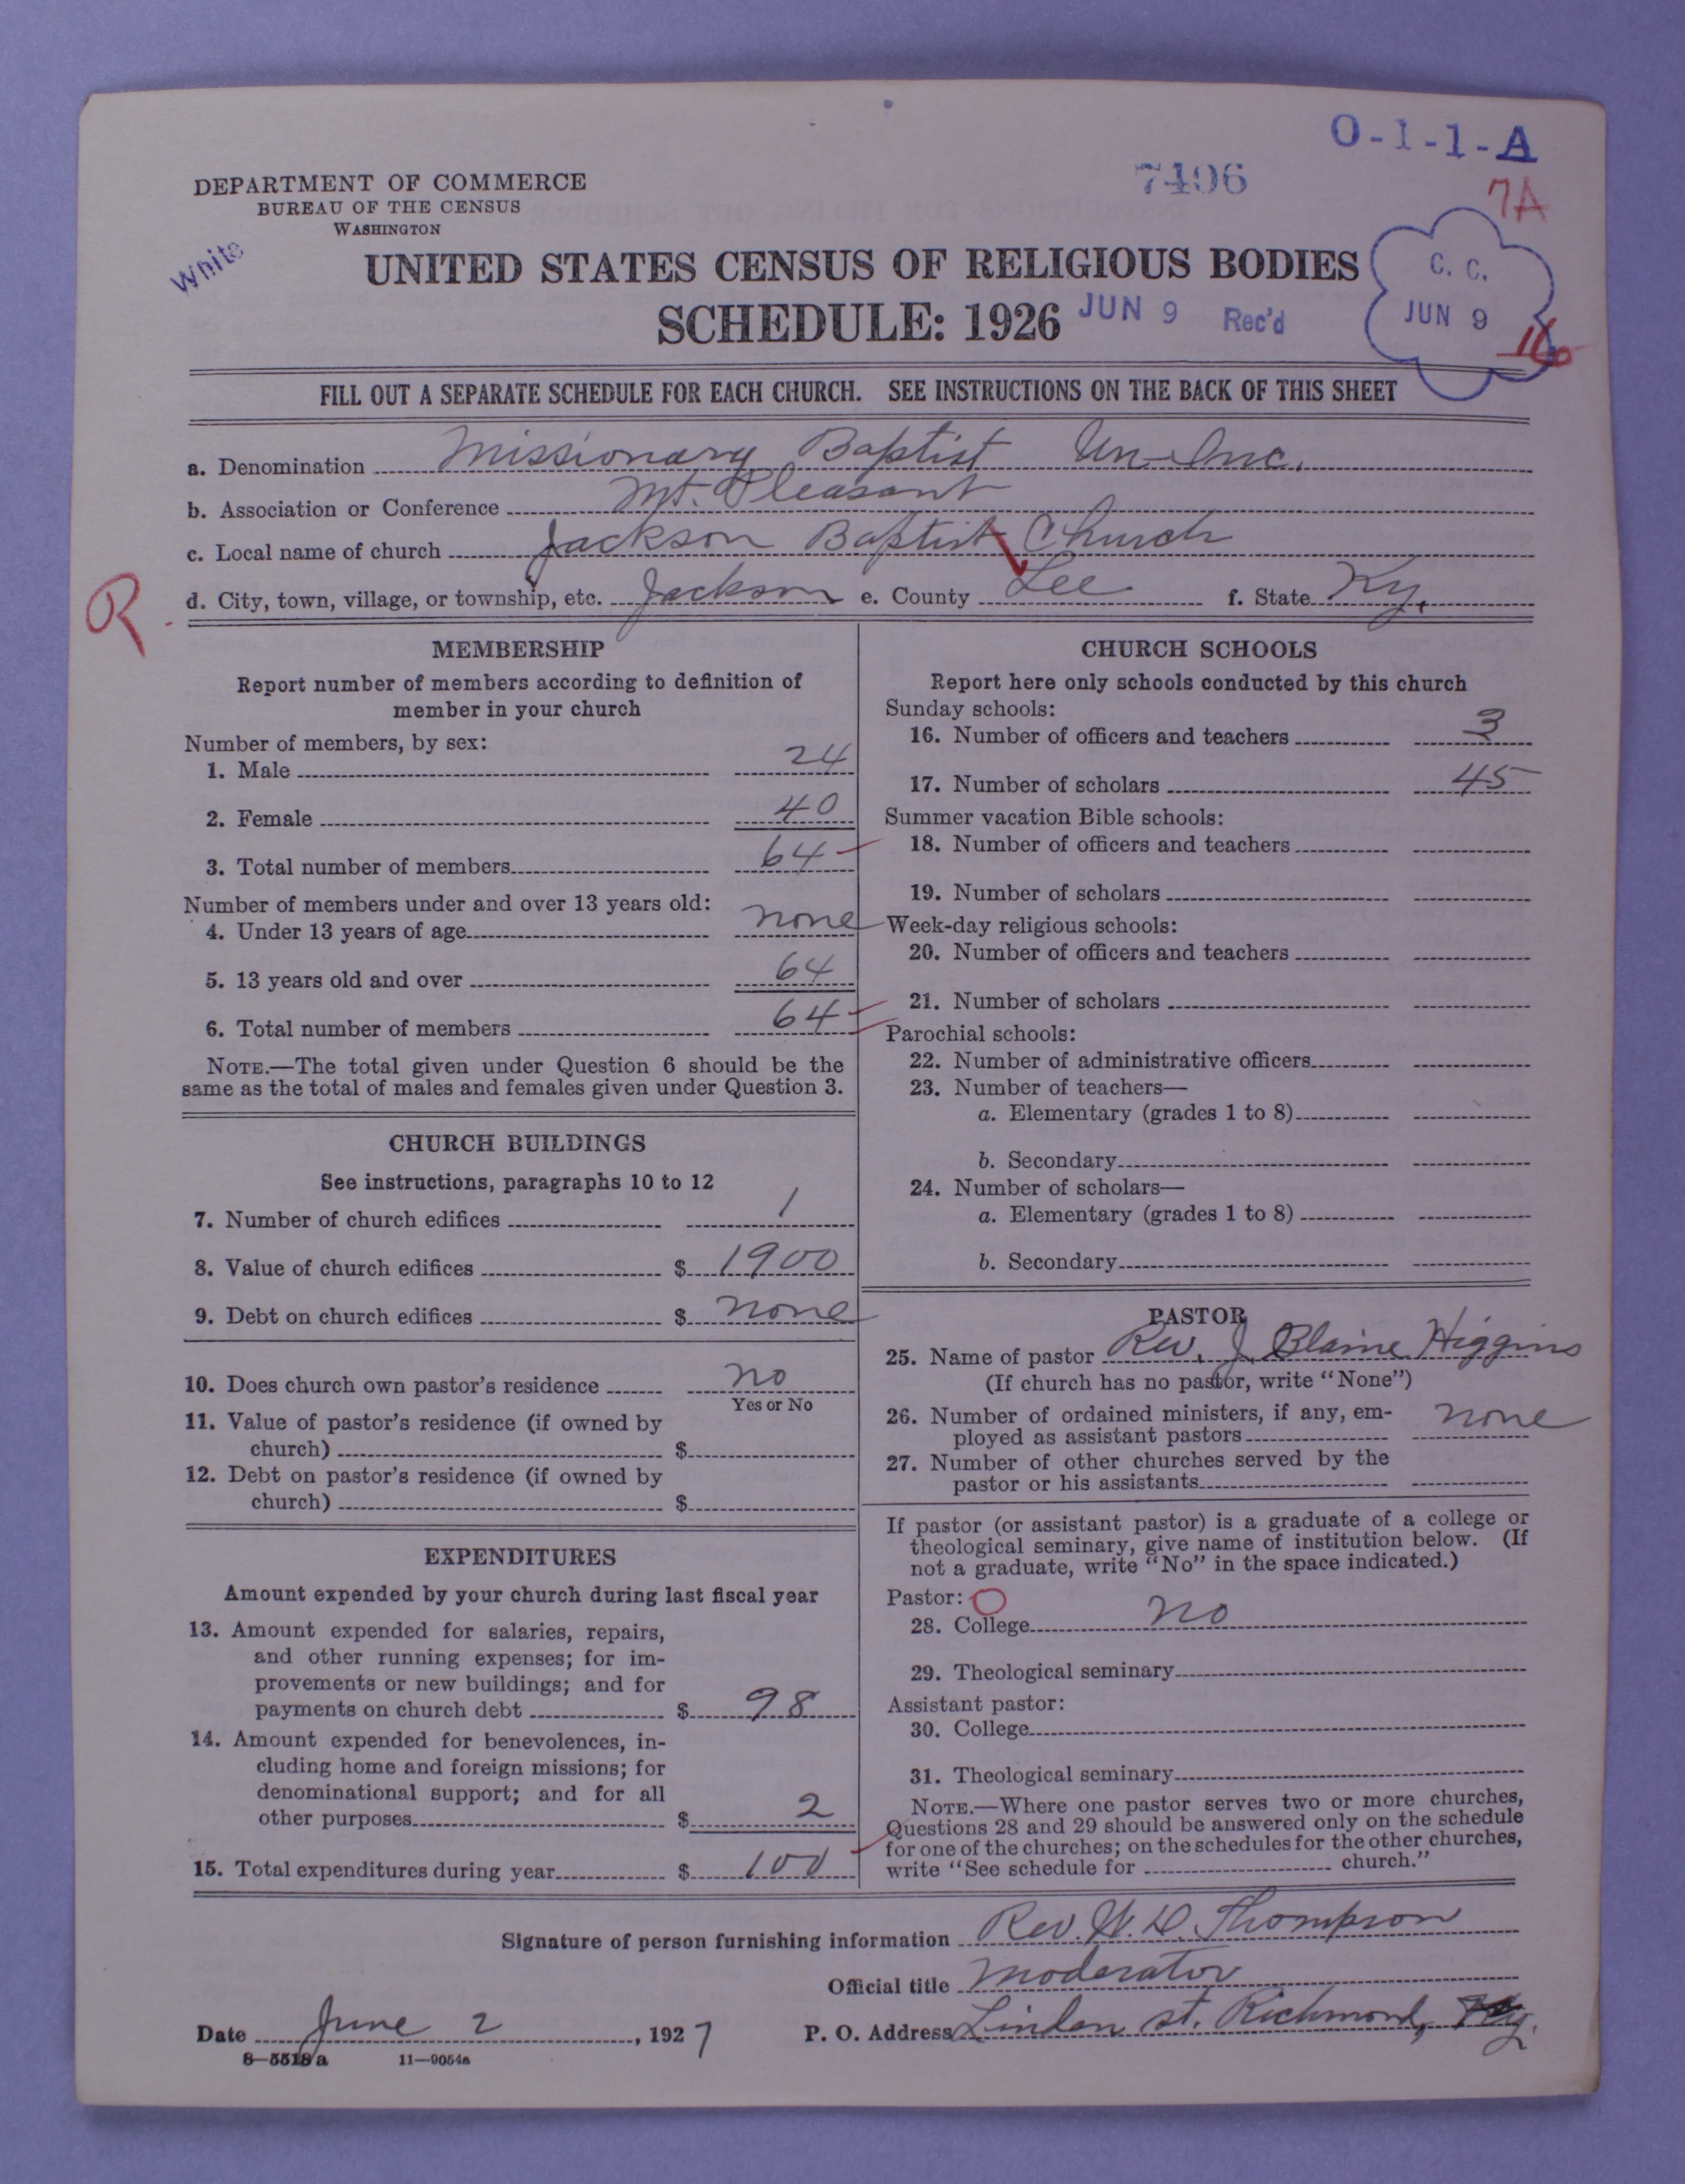 O-1-1-A
7496
7A
DEPARTMENT OF COMMERCE
BUREAU OF THE CENSUS
WASHINGTON
White
UNITED STATES CENSUS OF RELIGIOUS BODIES
SCHEDULE: 1926
JUN 9 Rec'd
C. C.
JUN 9
16
FILL OUT A SEPARATE SCHEDULE FOR EACH CHURCH. SEE INSTRUCTIONS ON THE BACK OF THIS SHEET
a. Denomination Missionary Baptist Un-Inc.
b. Association or Conference Mt. Pleasant
c. Local name of church Jackson Baptist Church
R. d. City, town, village, or township, etc. Jackson e. County Lee f. State Ky.
MEMBERSHIP
Report number of members according to definition of
member in your church
Number of members, by sex:
1. Male 24
2. Female 40
3. Total number of members 64
Number of members under and over 13 years old:
4. Under 13 years of age none
5. 13 years old and over 64
6. Total number of members 64
NOTE.—The total given under Question 6 should be the
same as the total of males and females given under Question 3.
CHURCH BUILDINGS
See instructions, paragraphs 10 to 12
7. Number of church edifices 1
8. Value of church edifices $ 1900
9. Debt on church edifices $ none
10. Does church own pastor's residence no
Yes or No
11. Value of pastor's residence (if owned by
church) $
12. Debt on pastor's residence (if owned by
church) $
EXPENDITURES
Amount expended by your church during last fiscal year
13. Amount expended for salaries, repairs,
and other running expenses; for im-
provements or new buildings; and for
payments on church debt $ 98
14. Amount expended for benevolences, in-
cluding home and foreign missions; for
denominational support; and for all
other purposes $ 2
15. Total expenditures during year $ 100
CHURCH SCHOOLS
Report here only schools conducted by this church
Sunday schools:
16. Number of officers and teachers 3
17. Number of scholars 45
Summer vacation Bible schools:
18. Number of officers and teachers
19. Number of scholars
Week-day religious schools:
20. Number of officers and teachers
21. Number of scholars
Parochial schools:
22. Number of administrative officers
23. Number of teachers—
a. Elementary (grades 1 to 8)
b. Secondary
24. Number of scholars—
a. Elementary (grades 1 to 8)
b. Secondary
PASTOR
25. Name of pastor Rev. J. Blaine Higgins
(If church has no pastor, write "None")
26. Number of ordained ministers, if any, em-
ployed as assistant pastors none
27. Number of other churches served by the
pastor or his assistants
If pastor (or assistant pastor) is a graduate of a college or
theological seminary, give name of institution below. (If
not a graduate, write "No" in the space indicated.)
Pastor: O
28. College no
29. Theological seminary
Assistant pastor:
30. College
31. Theological seminary
NOTE.—Where one pastor serves two or more churches,
Questions 28 and 29 should be answered only on the schedule
for one of the churches; on the schedules for the other churches,
write "See schedule for church."
Signature of person furnishing information Rev. W. D. Thompson
Official title Moderator
Date June 2, 1927 P. O. Address Linden st. Richmond, Ky.
8—5518a 11—9054a